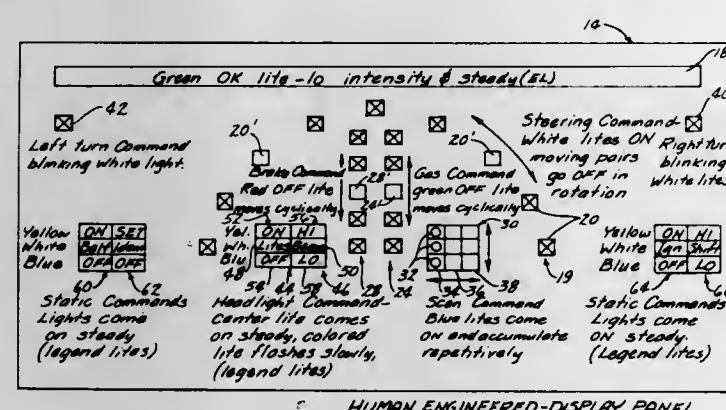 14
18
Green OK lite-lo intensity & steady (EL)
42
Left turn Command
blinking White light.
20'
20'
Steering Command
White lites ON
moving pairs
go OFF in
rotation
Right turn
blinking
White lites
Brake Command
Red OFF lite
moves cyclically
28'
24'
Gas Command
green OFF lite
moves cyclically
20
19
Yellow
White
Blue
ON SET
Belt
OFF OFF
60
62
Static Commands
Lights come
on steady
(legend lites)
52
56
Yel.
Wh.
Blu
48
ON HI
Lites
OFF LO
50
54 44 58 46 28 24
Headlight Command-
Center lite comes
on steady, colored
lite flashes slowly,
(legend lites)
30
32
34 36
38
Scan Command
Blue lites come
ON and accumulate
repetitively
Yellow
White
Blue
ON HI
Ign Shift
OFF LO
64
Static Commands
Lights come
ON steady.
(Legend lites)
HUMAN ENGINEERED-DISPLAY PANEL